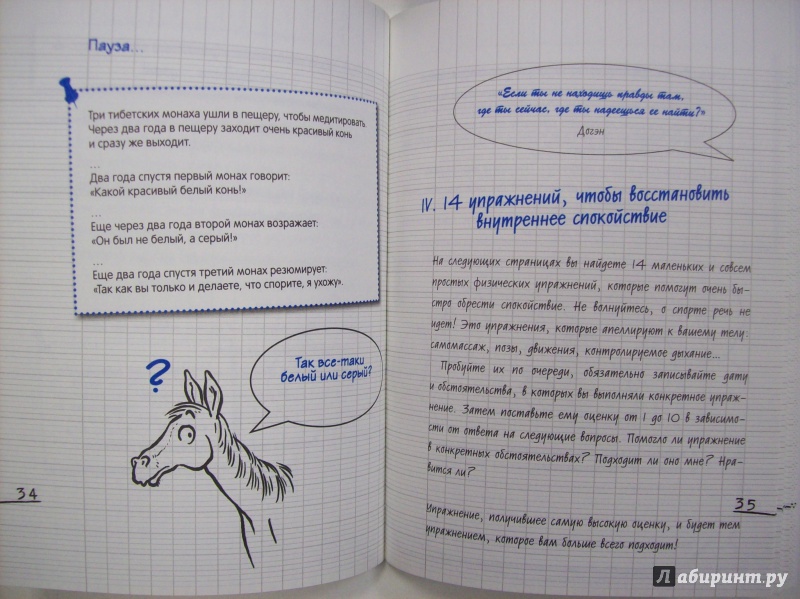 Пауза...
Три тибетских монаха ушли в пещеру, чтобы медитировать.
Через два года в пещеру заходит очень красивый конь
и сразу же выходит.
...
Два года спустя первый монах говорит:
«Какой красивый белый конь!»
...
Еще через два года второй монах возражает:
«Он был не белый, а серый!»
...
Еще два года спустя третий монах резюмирует:
«Так как вы только и делаете, что спорите, я ухожу».
?
Так все-таки
белый или серый?
34
«Если ты не находишь правды там,
где ты сейчас, где ты надеешься ее найти?»
Догэн
IV. 14 упражнений, чтобы восстановить
внутреннее спокойствие
На следующих страницах вы найдете 14 маленьких и совсем
простых физических упражнений, которые помогут очень бы-
стро обрести спокойствие. Не волнуйтесь, о спорте речь не
идет! Это упражнения, которые апеллируют к вашему телу:
самомассаж, позы, движения, контролируемое дыхание...
Пробуйте их по очереди, обязательно записывайте дату
и обстоятельства, в которых вы выполняли конкретное упраж-
нение. Затем поставьте ему оценку от 1 до 10 в зависимо-
сти от ответа на следующие вопросы. Помогло ли упражнение
в конкретных обстоятельствах? Подходит ли оно мне? Нра-
вится ли?
35
Упражнение, получившее самую высокую оценку, и будет тем
упражнением, которое вам больше всего подходит!
Лабиринт.ру